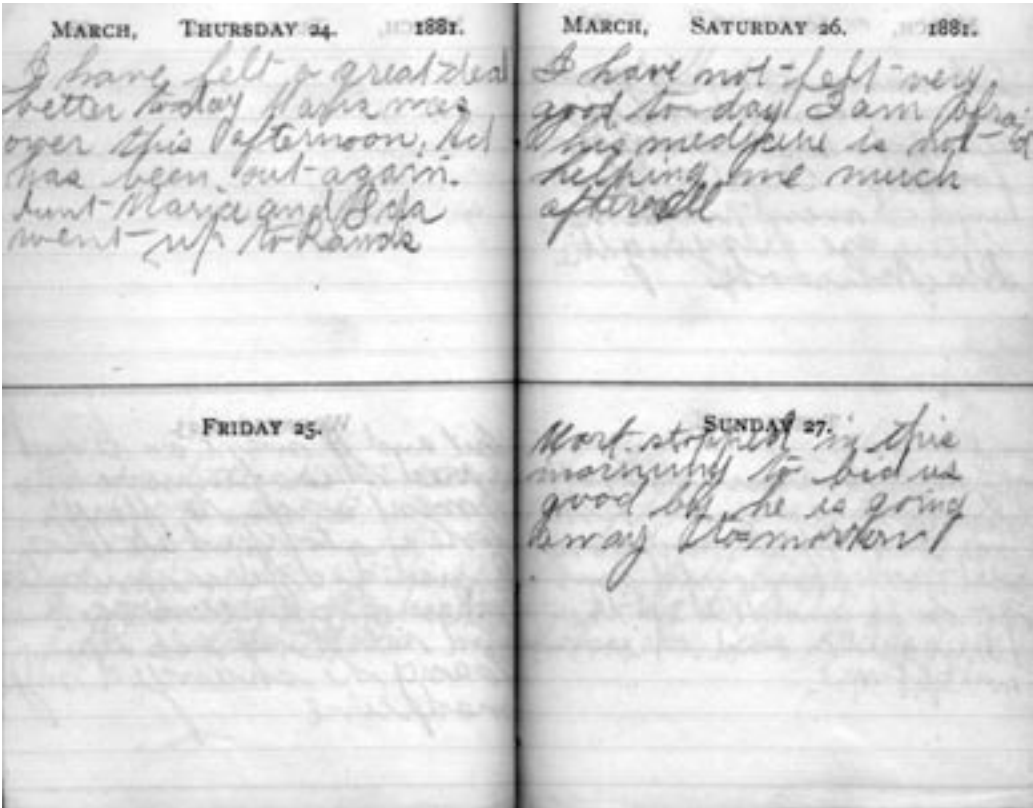 MARCH, THURSDAY 24. 1881.
I have felt a great deal
better today Maria was
over this afternoon, Ad
has been out again.
Aunt Marice and Ida
went up to Rands
FRIDAY 25.
MARCH, SATURDAY 26. 1881.
I have not felt very
good to day I am afraid
this medicine is not
helping me much
afterall
SUNDAY 27.
Mort stopped in this
morning to bid us
good by he is going
away to=morrow